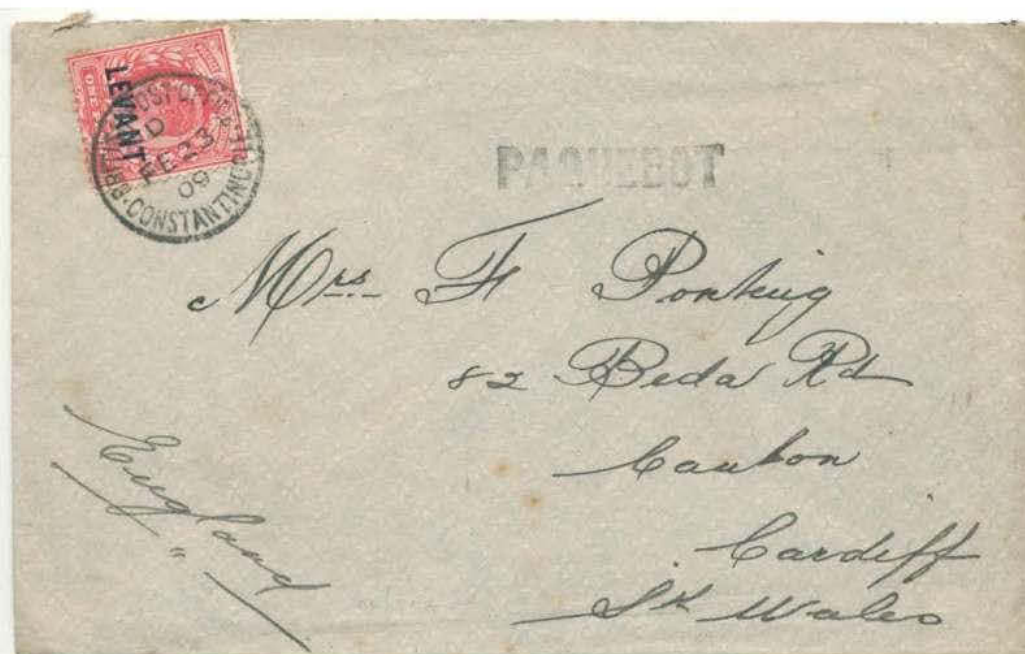 LEVANT
BRITISH POST OFFICE
D
FE 23
09
CONSTANTINOPLE
PAQUEBOT
Mrs F Ponting
82 Beda Rd
Canton
Cardiff
Sth Wales
England